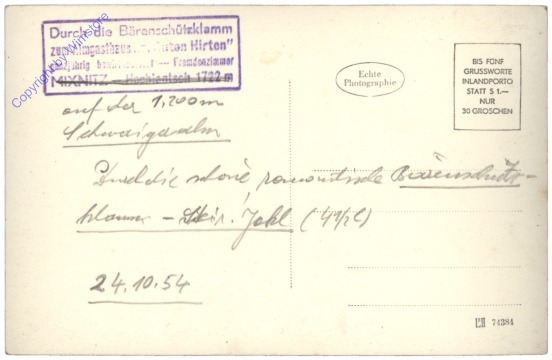 Durch die Bärenschützklamm
zum Almgasthaus "Guten Hirten"
Fremdenzimmer
MIXNITZ — Hochlantsch 1722 m
Copyright by Wimstore
Echte
Photographie
BIS FÜNF
GRUSSWORTE
INLANDPORTO
STATT S 1.—
NUR
30 GROSCHEN
auf der 1,200m
Schwaigeralm
Durch die schöne romantische Bärenschütz-
klamm - Steir. Jokl (4½ l)
24.10.54
74384